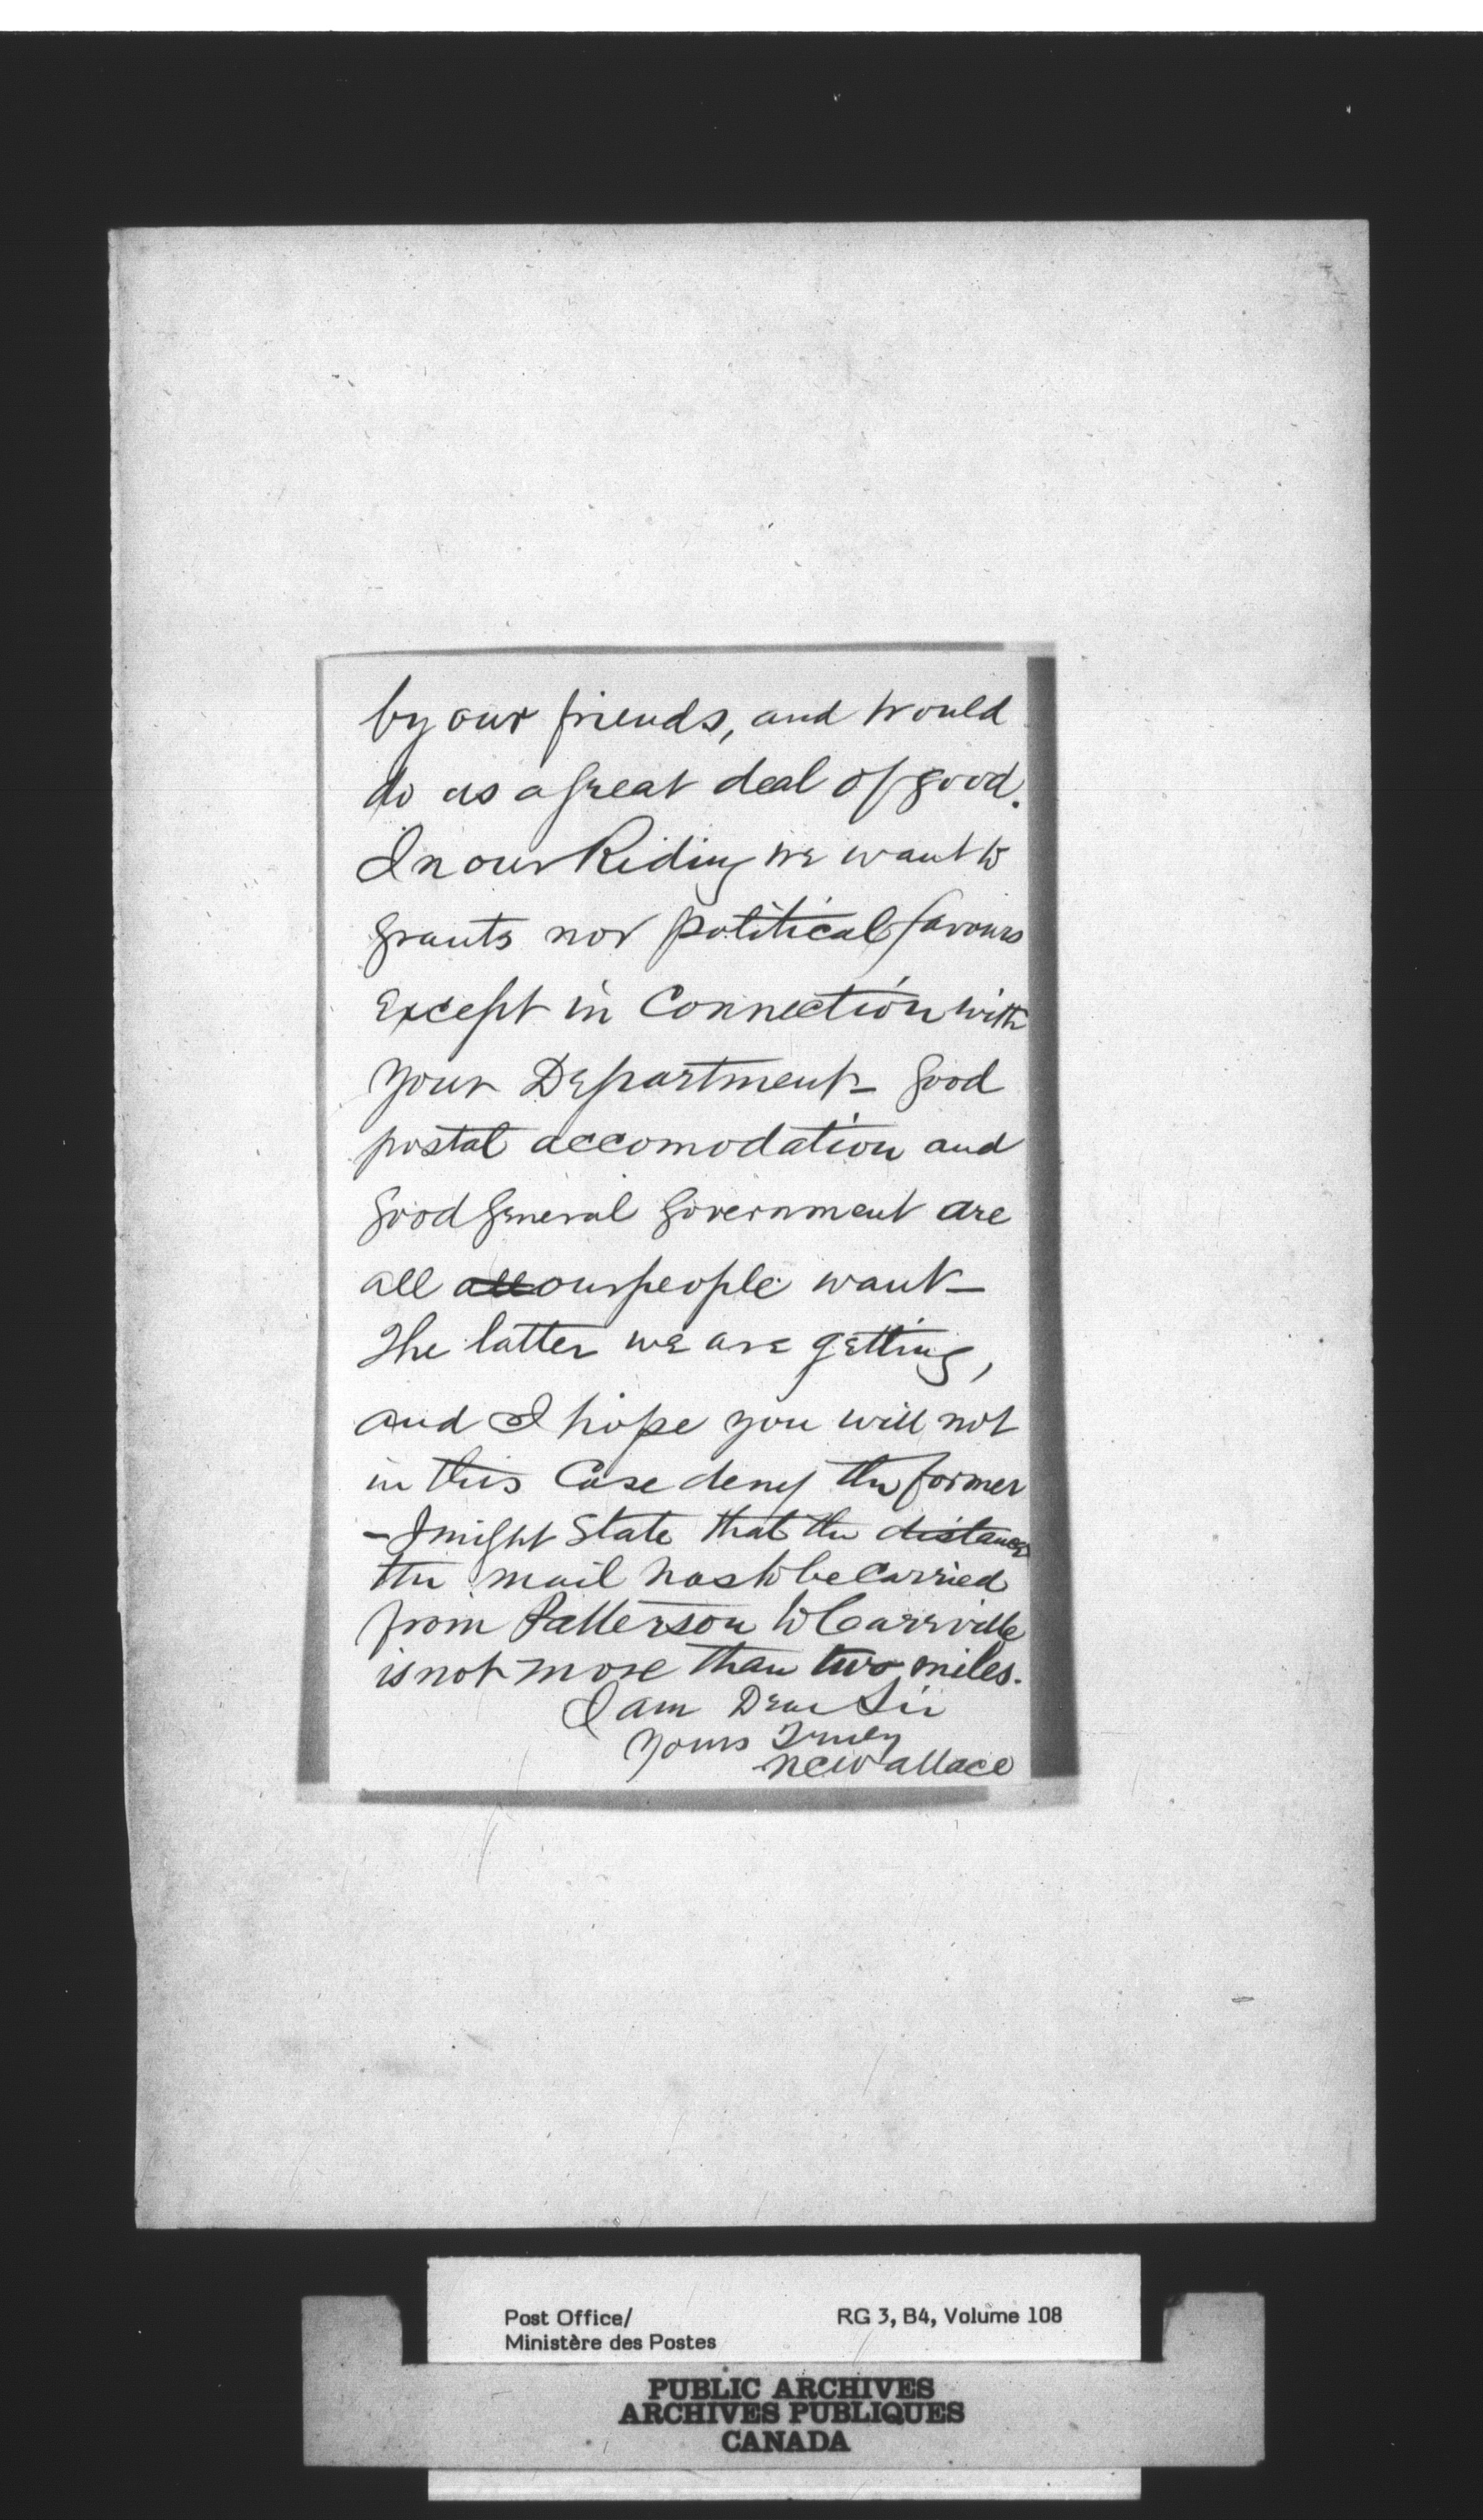 by our friends, and would
do us a great deal of good.
In our Riding we want to
grants nor political favours
Except in Connection with
your Department – good
postal accomodation and
good general government are
all all our people want –
The latter we are getting,
and I hope you will not
in this Case deny the former
– I might State that the distance
the mail has to be Carried
from Patterson to Carrville
is not more than two miles.
I am Dear Sir
Yours Truly
NCWallace
Post Office/
Ministère des Postes
RG 3, B4, Volume 108
PUBLIC ARCHIVES
ARCHIVES PUBLIQUES
CANADA